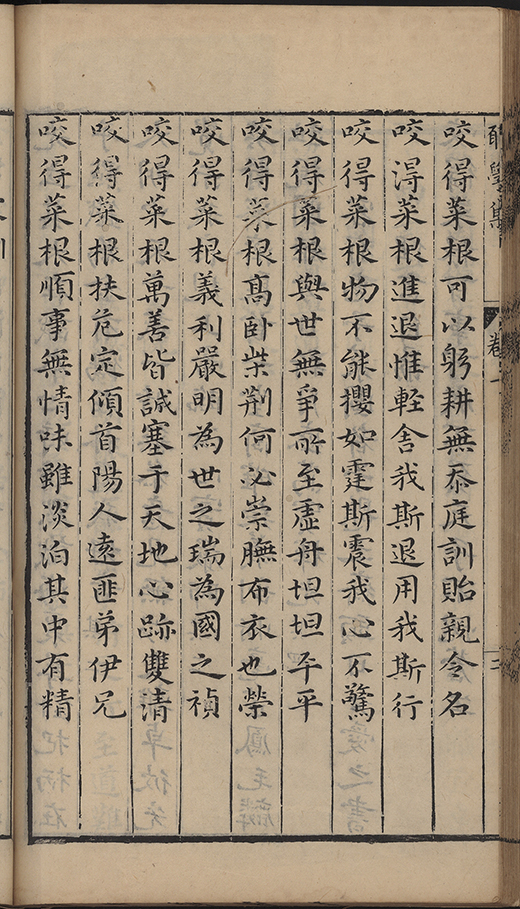 咬得菜根可以躬耕無忝庭訓貽親令名
咬淂菜根進退惟輕舍我斯退用我斯行
咬得菜根物不能攖如霆斯震我心不驚
咬得菜根與世無爭所至虛舟坦坦平平
咬得菜根高卧柴荆何必崇膴布衣也榮
咬得菜根義利嚴明為世之瑞為國之禎
咬得菜根萬善皆誠塞于天地心跡雙清
咬得菜根扶危定傾首陽人遠匪弟伊兄
咬得菜根順事無情味雖淡泊其中有精